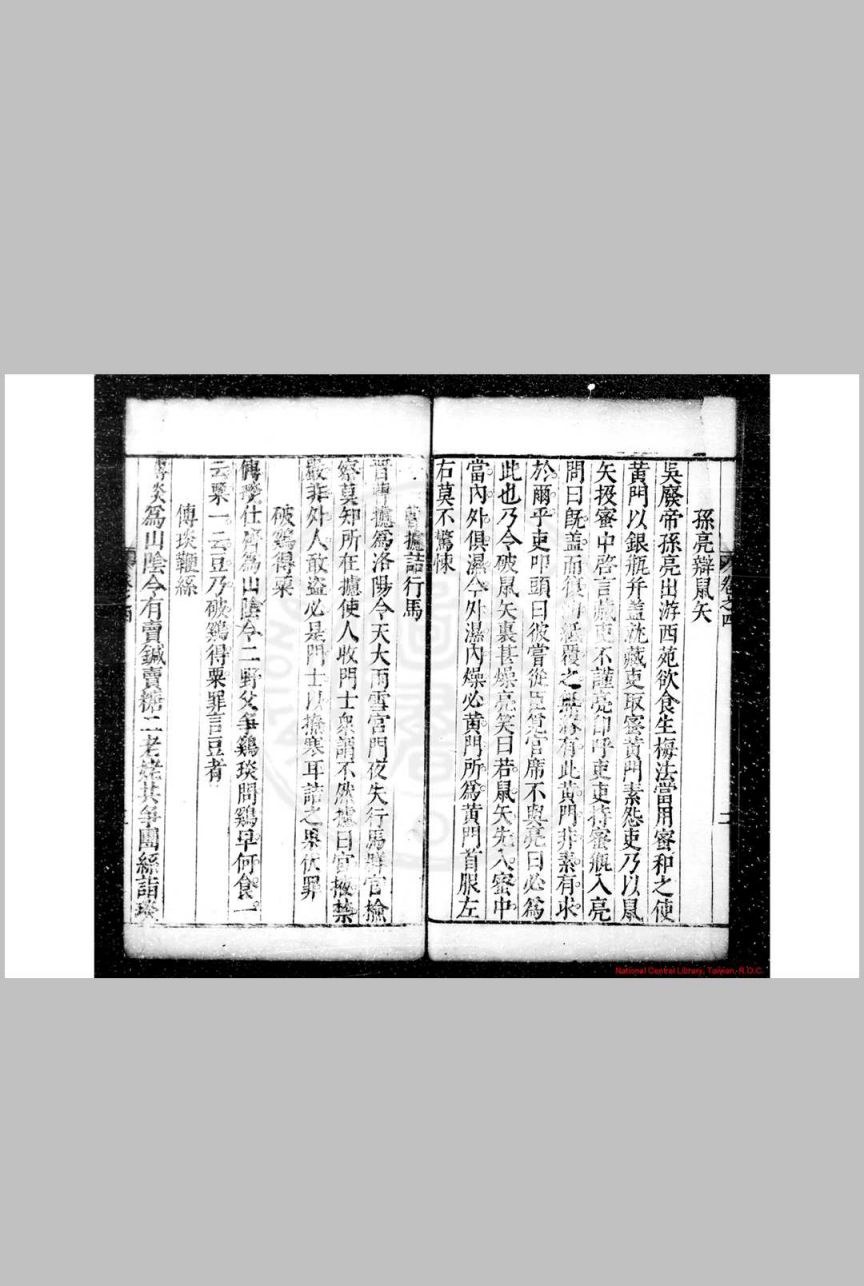 孫亮辯鼠矢
吳廢帝孫亮出游西苑欲食生梅法當用蜜和之使
黃門以銀瓶并蓋就藏吏取蜜黃門素怨吏乃以鼠
矢投蜜中啓言藏吏不謹亮卽呼吏吏持蜜瓶入亮
問曰旣蓋而復紙覆之無有此黃門非素有求
於爾乎吏叩頭曰彼嘗從臣覓官席不與亮曰必爲
此也乃令破鼠矢裏甚燥亮笑曰若鼠矢先入蜜中
當內外俱濕今外濕內燥必黃門所爲黃門首服左
右莫不驚悚
曹攄詰行馬
晉曹攄爲洛陽令天大雨雪宮門夜失行馬群官檢
察莫知所在攄使人收門士衆謂不然攄曰宮掖禁
嚴非外人敢盜必是門士以撩寒耳詰之果伏罪
破鷄得粟
傅琰仕齊爲山陰令二野父爭鷄琰問鷄早何食一
云粟一云豆乃破鷄得粟罪言豆者
傅琰鞭絲
傅琰爲山陰令有賣鍼賣糖二老姥共爭團絲詣琰
卷之四
二
National Central Library, Taiwan, R.O.C.